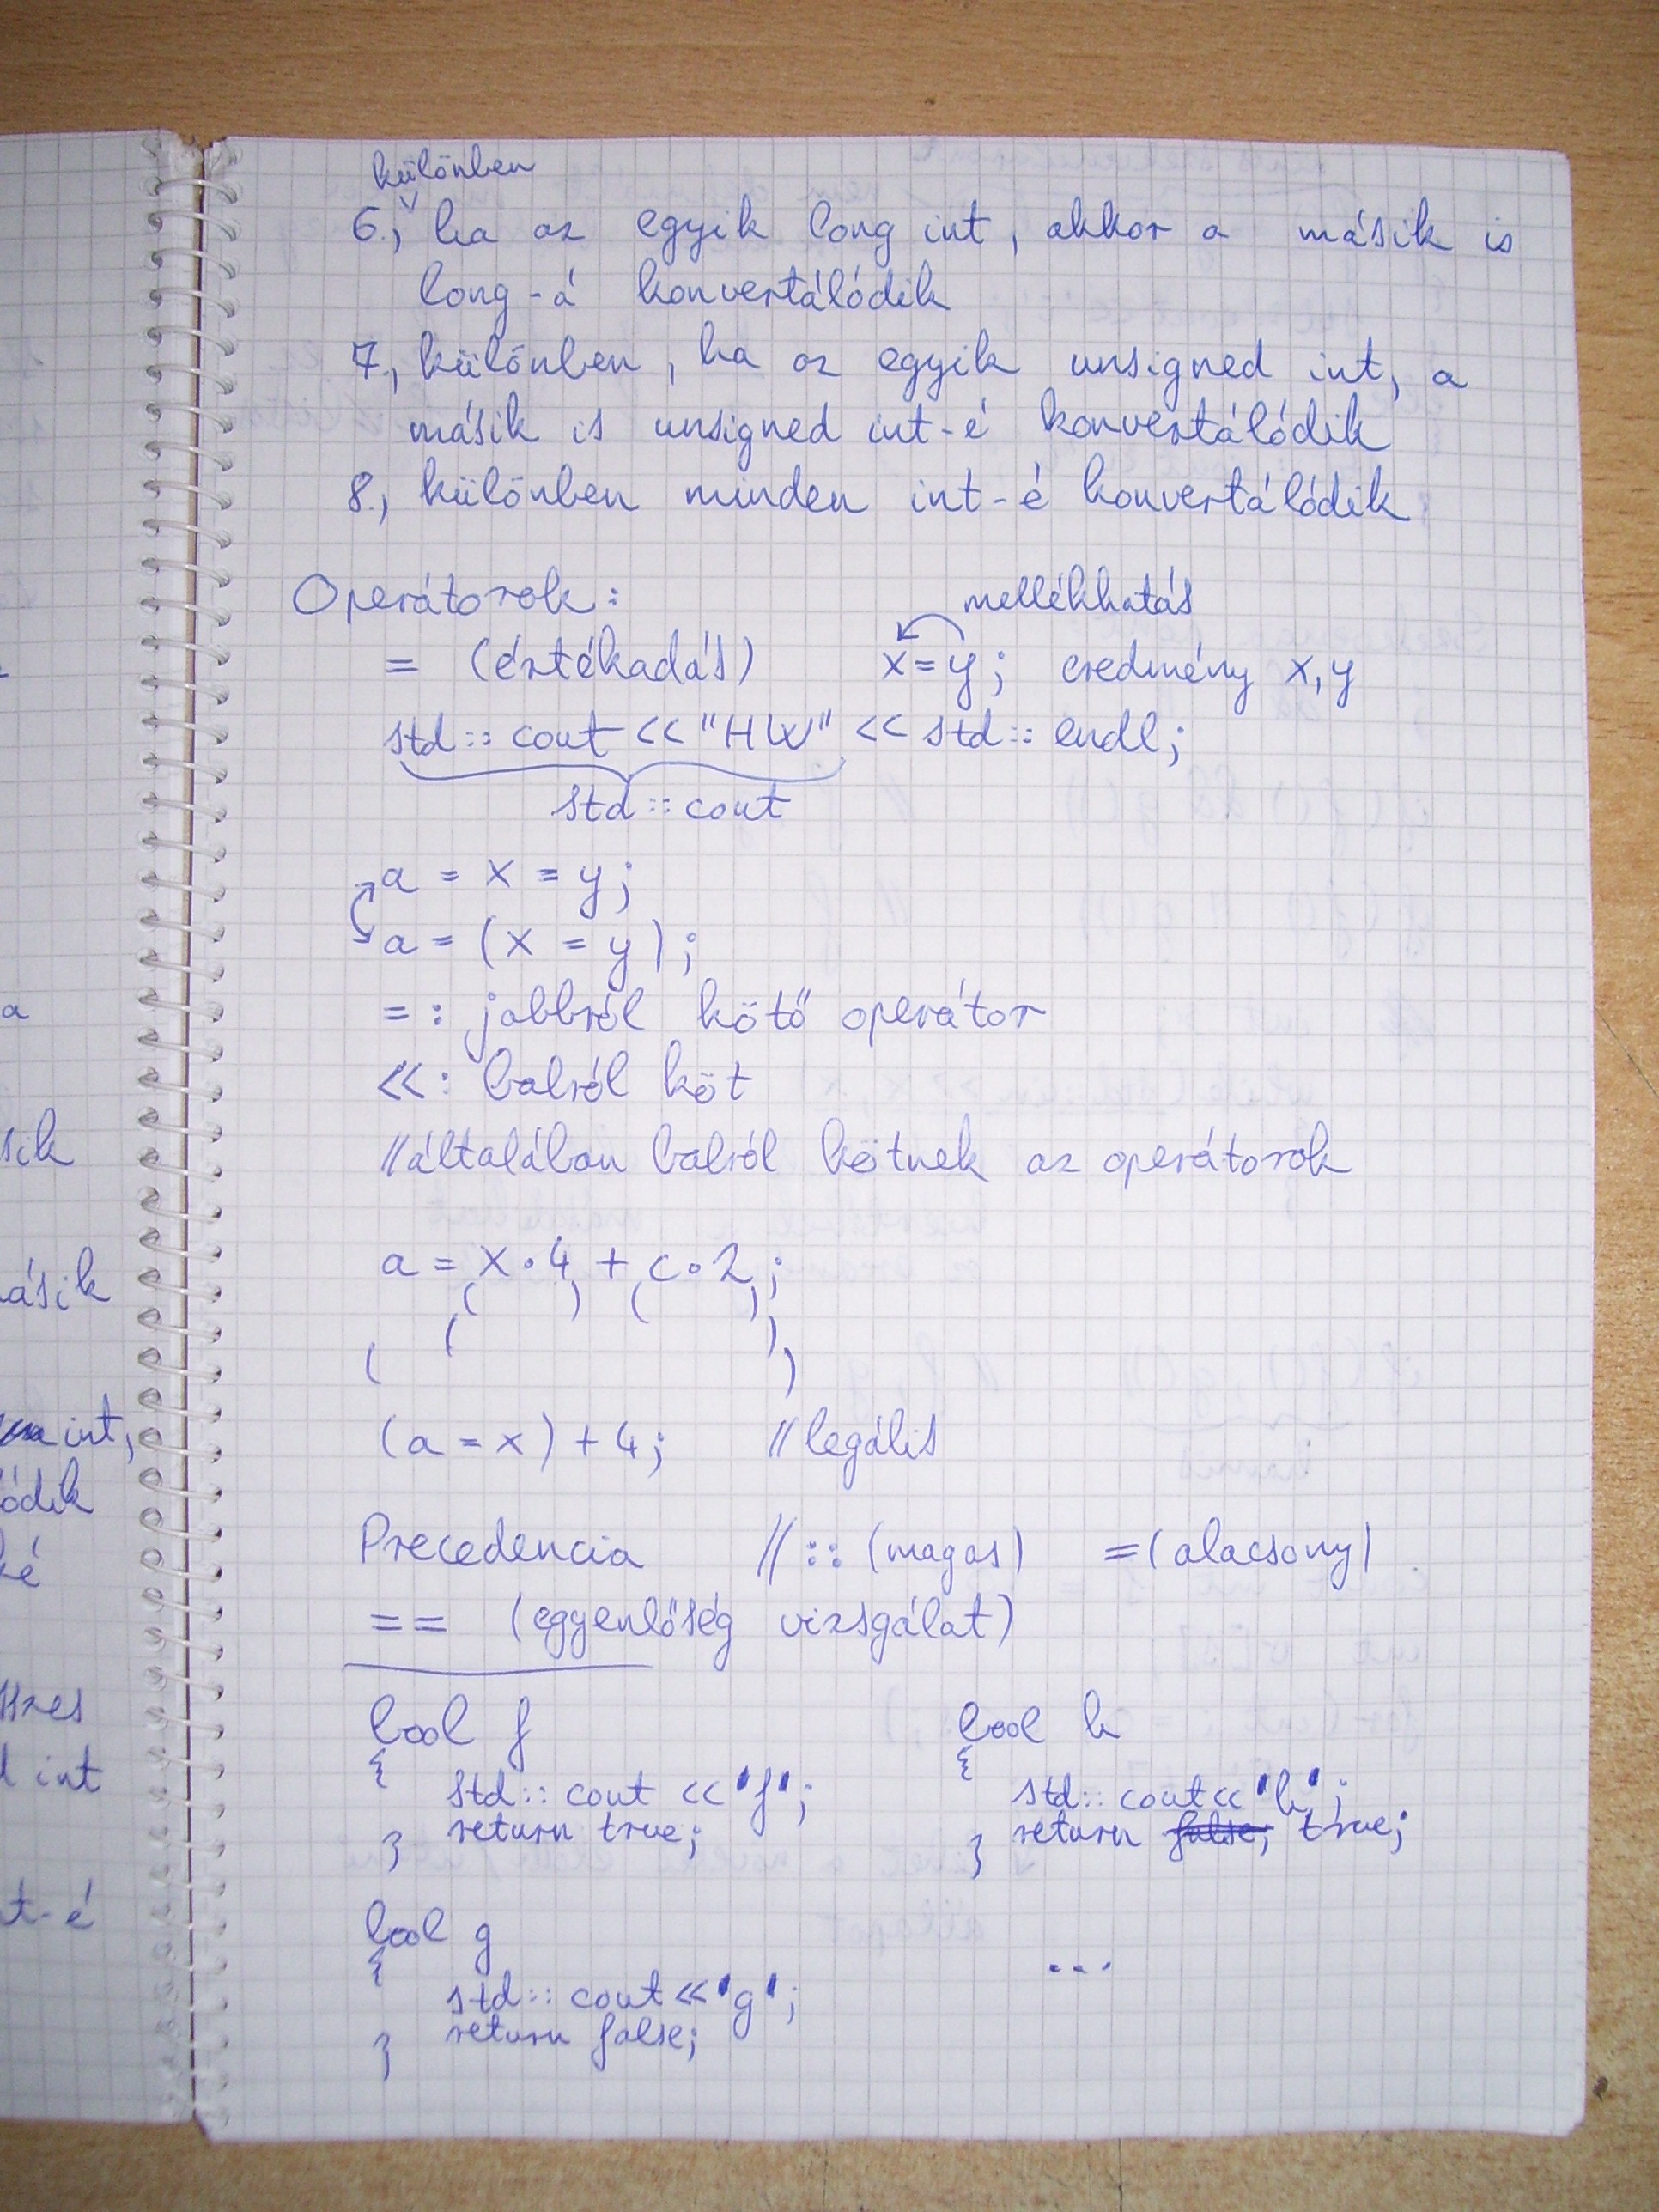 különben
6., ha az egyik long int, akkor a másik is
long-á konvertálódik
7., különben, ha az egyik unsigned int, a
másik is unsigned int-é konvertálódik
8., különben minden int-é konvertálódik
Operátorok: mellékhatás
= (értékadás) x=y; eredmény x,y
std::cout << "HW" << std::endl;
std::cout
a = x = y;
a = (x = y);
= : jobbról kötő operátor
<< : balról köt
//általában balról kötnek az operátorok
a = x·4 + c·2;
( ) ( )
( )
( )
(a = x) + 4; //legális
Precedencia // :: (magas) =(alacsony)
== (egyenlőség vizsgálat)
bool f bool h
{ {
std::cout <<'f'; std::cout<<'h';
} return true; } return false; true;
bool g
{ ...
std::cout<<'g';
} return false;
a
sik
ásik
int,
ódik
é
szes
int
t-é